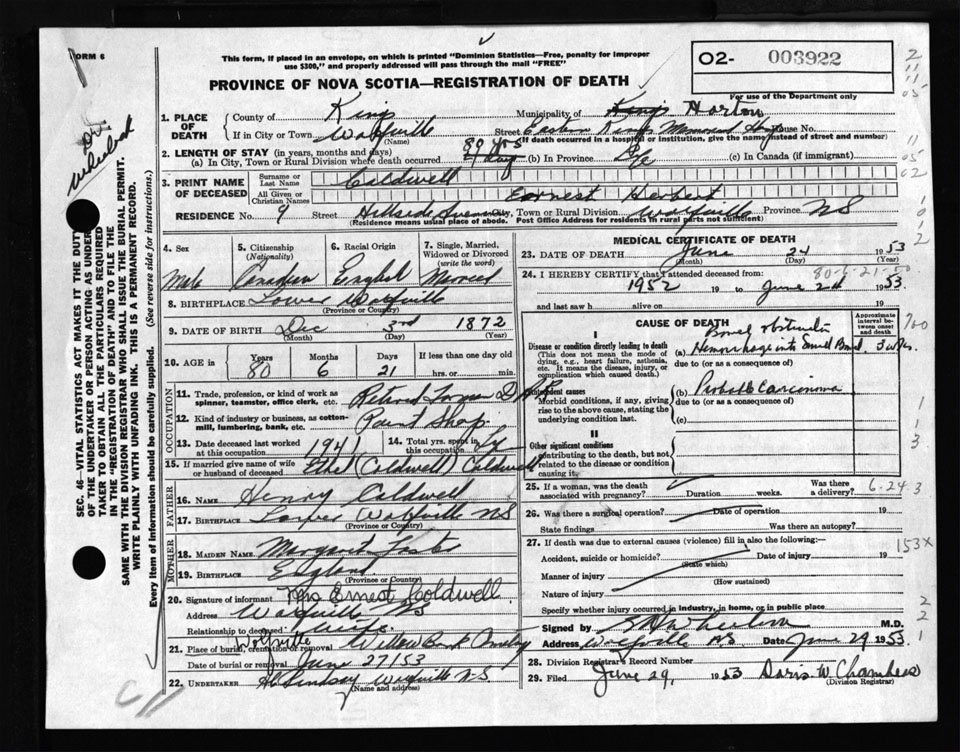 FORM 6
This form, if placed in an envelope, on which is printed "Dominion Statistics—Free, penalty for improper
use $300," and properly addressed will pass through the mail "FREE"
PROVINCE OF NOVA SCOTIA—REGISTRATION OF DEATH
02- 003922
For use of the Department only
1. PLACE OF DEATH
County of Kings
Municipality of Kings Horton
If in City or Town Wolfville (Name)
Street Eastern Kings Memorial Hosp House No.
(If death occurred in a hospital or institution, give the name instead of street and number)
2. LENGTH OF STAY (in years, months and days)
(a) In City, Town or Rural Division where death occurred 80 yrs (b) In Province (c) In Canada (if immigrant)
3. PRINT NAME OF DECEASED
Surname or Last Name Coldwell
All Given or Christian Names Earnest Herbert
RESIDENCE No. 9 Street Hillside Avenue City, Town or Rural Division Wolfville Province NS
(Residence means usual place of abode. Post Office Address for residents in rural parts not sufficient)
4. Sex Male
5. Citizenship (Nationality) Canadian
6. Racial Origin English
7. Single, Married, Widowed or Divorced (write the word) Married
8. BIRTHPLACE Lower Wolfville
(Province or Country)
9. DATE OF BIRTH Dec 3rd 1872
(Month) (Day) (Year)
10. AGE in Years 80 Months 6 Days 21 If less than one day old hrs. or min.
OCCUPATION
11. Trade, profession, or kind of work as spinner, teamster, office clerk, etc. Retired Foreman D A R
12. Kind of industry or business, as cotton-mill, lumbering, bank, etc. Paint Shop
13. Date deceased last worked at this occupation 1941
14. Total yrs. spent in this occupation
15. If married give name of wife or husband of deceased Ethel (Coldwell) Coldwell
FATHER
16. NAME Henry Coldwell
17. BIRTHPLACE Lower Wolfville NS
(Province or Country)
MOTHER
18. MAIDEN NAME Margaret
19. BIRTHPLACE England
(Province or Country)
20. Signature of informant Mrs Ernest Coldwell
Address Wolfville NS
Relationship to deceased Wife
21. Place of burial, cremation or removal Wolfville Willow Bank Cemetery
Date of burial or removal June 27/53
22. UNDERTAKER Lindsay Wolfville N-S
(Name and address)
MEDICAL CERTIFICATE OF DEATH
23. DATE OF DEATH June 24 1953
(Month) (Day) (Year)
24. I HEREBY CERTIFY that I attended deceased from:
1952 19 to June 24 1953
and last saw h alive on 19
80-6-21-50
CAUSE OF DEATH
Approximate interval between onset and death
I
Disease or condition directly leading to death
(This does not mean the mode of dying, e.g., heart failure, asthenia, etc. It means the disease, injury, or complication which caused death.)
Bowel obstruction
(a) Hemorrhage into Small Bowel 3 wks.
due to (or as a consequence of)
Antecedent causes
Morbid conditions, if any, giving rise to the above cause, stating the underlying condition last.
(b) Probable Carcinoma
due to (or as a consequence of)
(c)
II
Other significant conditions
contributing to the death, but not related to the disease or condition causing it.
25. If a woman, was the death associated with pregnancy? Duration weeks. Was there a delivery?
6-24 3
26. Was there a surgical operation? Date of operation 19
State findings Was there an autopsy?
27. If death was due to external causes (violence) fill in also the following:—
153X
Accident, suicide or homicide? Date of injury 19
(State which)
Manner of injury
(How sustained)
Nature of injury
Specify whether injury occurred in industry, in home, or in public place
Signed by M.D.
Address Wolfville N.S. Date June 29 1953
28. Division Registrar's Record Number
29. Filed June 29, 1953 Doris W Chambers
(Division Registrar)
Dr Wheelock
SEC. 46—VITAL STATISTICS ACT MAKES IT THE DUTY
OF THE UNDERTAKER OR PERSON ACTING AS UNDERTAKER
TO OBTAIN ALL THE PARTICULARS REQUIRED
IN THE "REGISTRATION OF DEATH" AND TO FILE THE
SAME WITH THE DIVISION REGISTRAR WHO SHALL ISSUE THE BURIAL PERMIT.
WRITE PLAINLY WITH UNFADING INK. THIS IS A PERMANENT RECORD.
Every item of information should be carefully supplied. (See reverse side for instructions.)